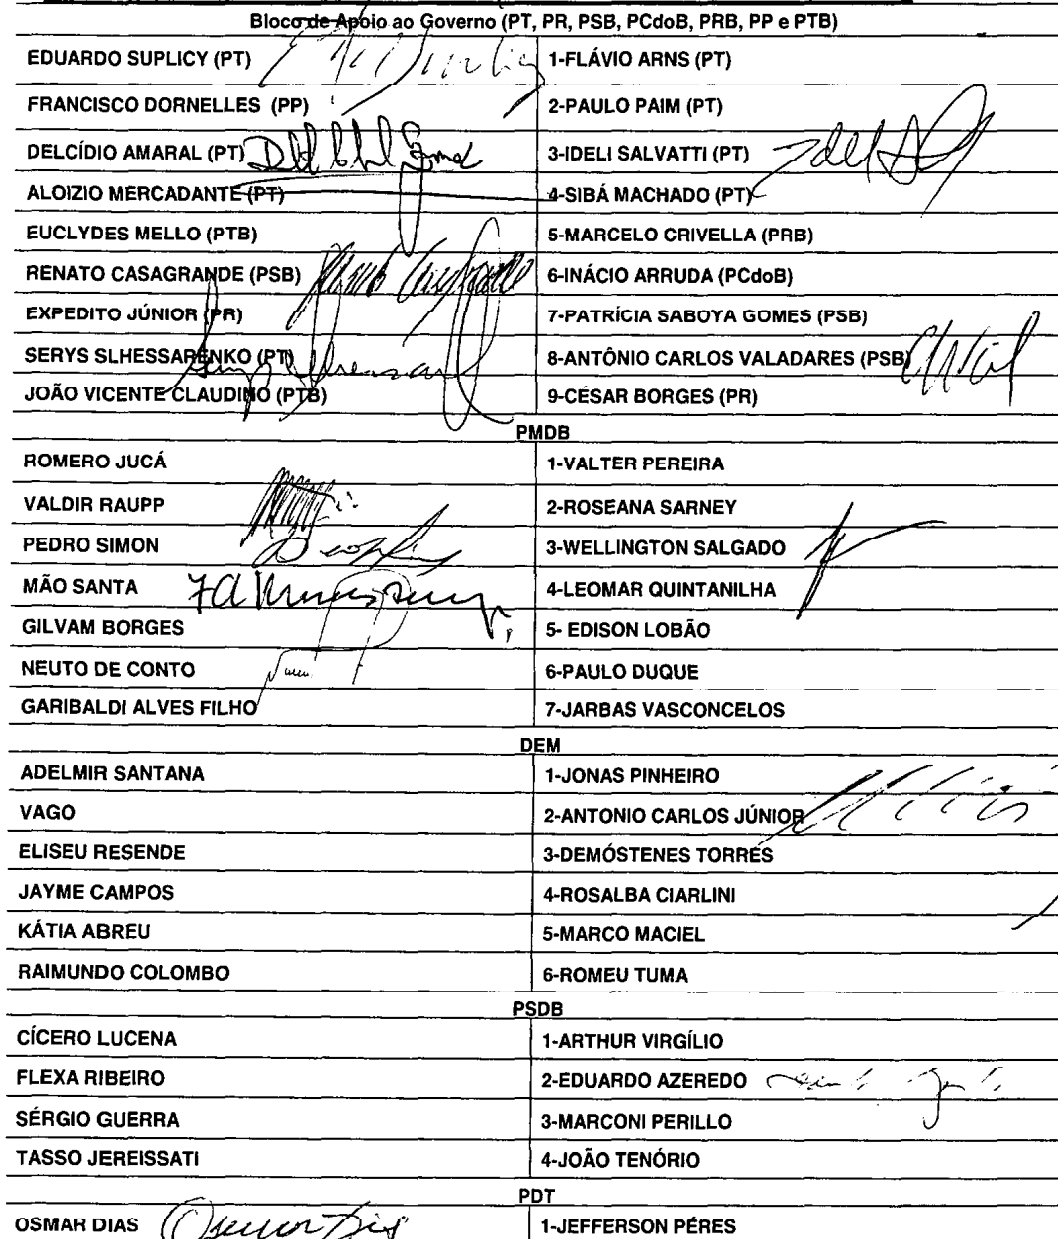 Bloco de Apoio ao Governo (PT, PR, PSB, PCdoB, PRB, PP e PTB)
EDUARDO SUPLICY (PT) 1-FLÁVIO ARNS (PT)
FRANCISCO DORNELLES (PP) 2-PAULO PAIM (PT)
DELCÍDIO AMARAL (PT) 3-IDELI SALVATTI (PT)
ALOIZIO MERCADANTE (PT) 4-SIBÁ MACHADO (PT)
EUCLYDES MELLO (PTB) 5-MARCELO CRIVELLA (PRB)
RENATO CASAGRANDE (PSB) 6-INÁCIO ARRUDA (PCdoB)
EXPEDITO JÚNIOR (PR) 7-PATRÍCIA SABOYA GOMES (PSB)
SERYS SLHESSARENKO (PT) 8-ANTÔNIO CARLOS VALADARES (PSB)
JOÃO VICENTE CLAUDINO (PTB) 9-CÉSAR BORGES (PR)
PMDB
ROMERO JUCÁ 1-VALTER PEREIRA
VALDIR RAUPP 2-ROSEANA SARNEY
PEDRO SIMON 3-WELLINGTON SALGADO
MÃO SANTA 4-LEOMAR QUINTANILHA
GILVAM BORGES 5- EDISON LOBÃO
NEUTO DE CONTO 6-PAULO DUQUE
GARIBALDI ALVES FILHO 7-JARBAS VASCONCELOS
DEM
ADELMIR SANTANA 1-JONAS PINHEIRO
VAGO 2-ANTONIO CARLOS JÚNIOR
ELISEU RESENDE 3-DEMÓSTENES TORRES
JAYME CAMPOS 4-ROSALBA CIARLINI
KÁTIA ABREU 5-MARCO MACIEL
RAIMUNDO COLOMBO 6-ROMEU TUMA
PSDB
CÍCERO LUCENA 1-ARTHUR VIRGÍLIO
FLEXA RIBEIRO 2-EDUARDO AZEREDO
SÉRGIO GUERRA 3-MARCONI PERILLO
TASSO JEREISSATI 4-JOÃO TENÓRIO
PDT
OSMAR DIAS Osmar Dias 1-JEFFERSON PÉRES